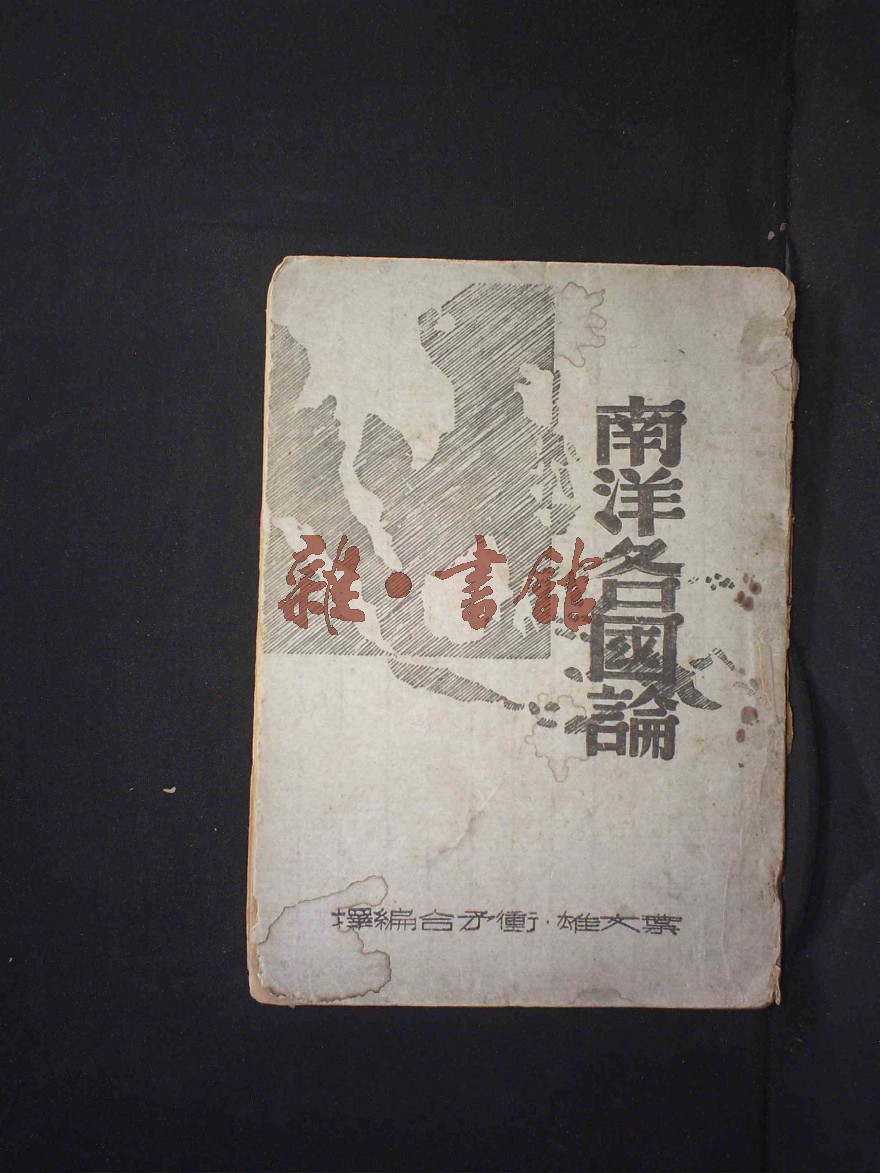 南洋各國論
雜·書館
葉文雄·衝矛合編譯